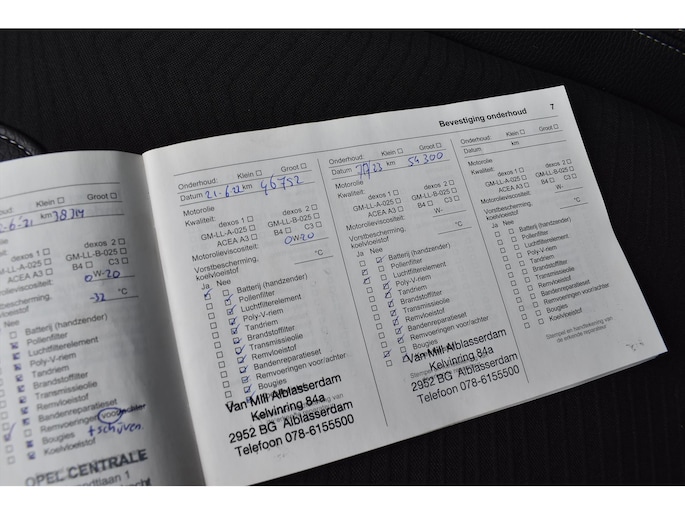 Bevestiging onderhoud 7
-6-'21 km
dexos 1 dexos 2
GM-LL-A-025 GM-LL-B-025
ACEA A3 B4 C3
Motorolieviscositeit: 0W-20
Vorstbescherming,
koelvloeistof -32 °C
Ja Nee
Batterij (handzender)
Pollenfilter
Luchtfilterelement
Poly-V-riem
Tandriem
Brandstoffilter
Transmissieolie
Remvloeistof
Bandenreparatieset
Remvoeringen voor/achter
Bougies + schijven.
Koelvloeistof
OPEL CENTRALE
ndtlaan 1
Onderhoud: Klein Groot
Datum 21-6-22 km 46752
Motorolie
Kwaliteit: dexos 1 dexos 2
GM-LL-A-025 GM-LL-B-025
ACEA A3 B4 C3
Motorolieviscositeit: 0W-20
Vorstbescherming,
koelvloeistof °C
Ja Nee
Batterij (handzender)
Pollenfilter
Luchtfilterelement
Poly-V-riem
Tandriem
Brandstoffilter
Transmissieolie
Remvloeistof
Bandenreparatieset
Remvoeringen voor/achter
Bougies
Van Mill Alblasserdam
Kelvinring 84a
2952 BG Alblasserdam
Telefoon 078-6155500
Onderhoud: Klein Groot
Datum km 54300
Motorolie
Kwaliteit: dexos 1 dexos 2
GM-LL-A-025 GM-LL-B-025
ACEA A3 B4 C3
Motorolieviscositeit: W-
Vorstbescherming,
koelvloeistof °C
Ja Nee
Batterij (handzender)
Pollenfilter
Luchtfilterelement
Poly-V-riem
Tandriem
Brandstoffilter
Transmissieolie
Remvloeistof
Bandenreparatieset
Remvoeringen voor/achter
Bougies
Van Mill Alblasserdam
Kelvinring 84a
2952 BG Alblasserdam
Telefoon 078-6155500
Onderhoud: Klein Groot
Datum km
Motorolie
Kwaliteit: dexos 1 dexos 2
GM-LL-A-025 GM-LL-B-025
ACEA A3 B4 C3
Motorolieviscositeit: W-
Vorstbescherming,
koelvloeistof °C
Ja Nee
Batterij (handzender)
Pollenfilter
Luchtfilterelement
Poly-V-riem
Tandriem
Brandstoffilter
Transmissieolie
Remvloeistof
Bandenreparatieset
Remvoeringen voor/achter
Bougies
Koelvloeistof
Stempel en handtekening van
de erkende reparateur